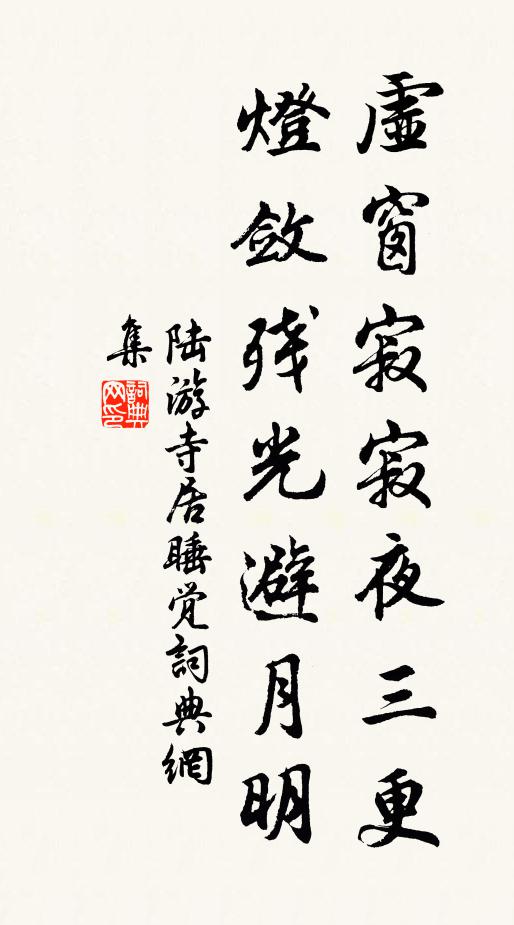 虛窗寂寂夜三更
燈斂残光避月明
陆游寺居睡觉詞典網
集
詞典网印